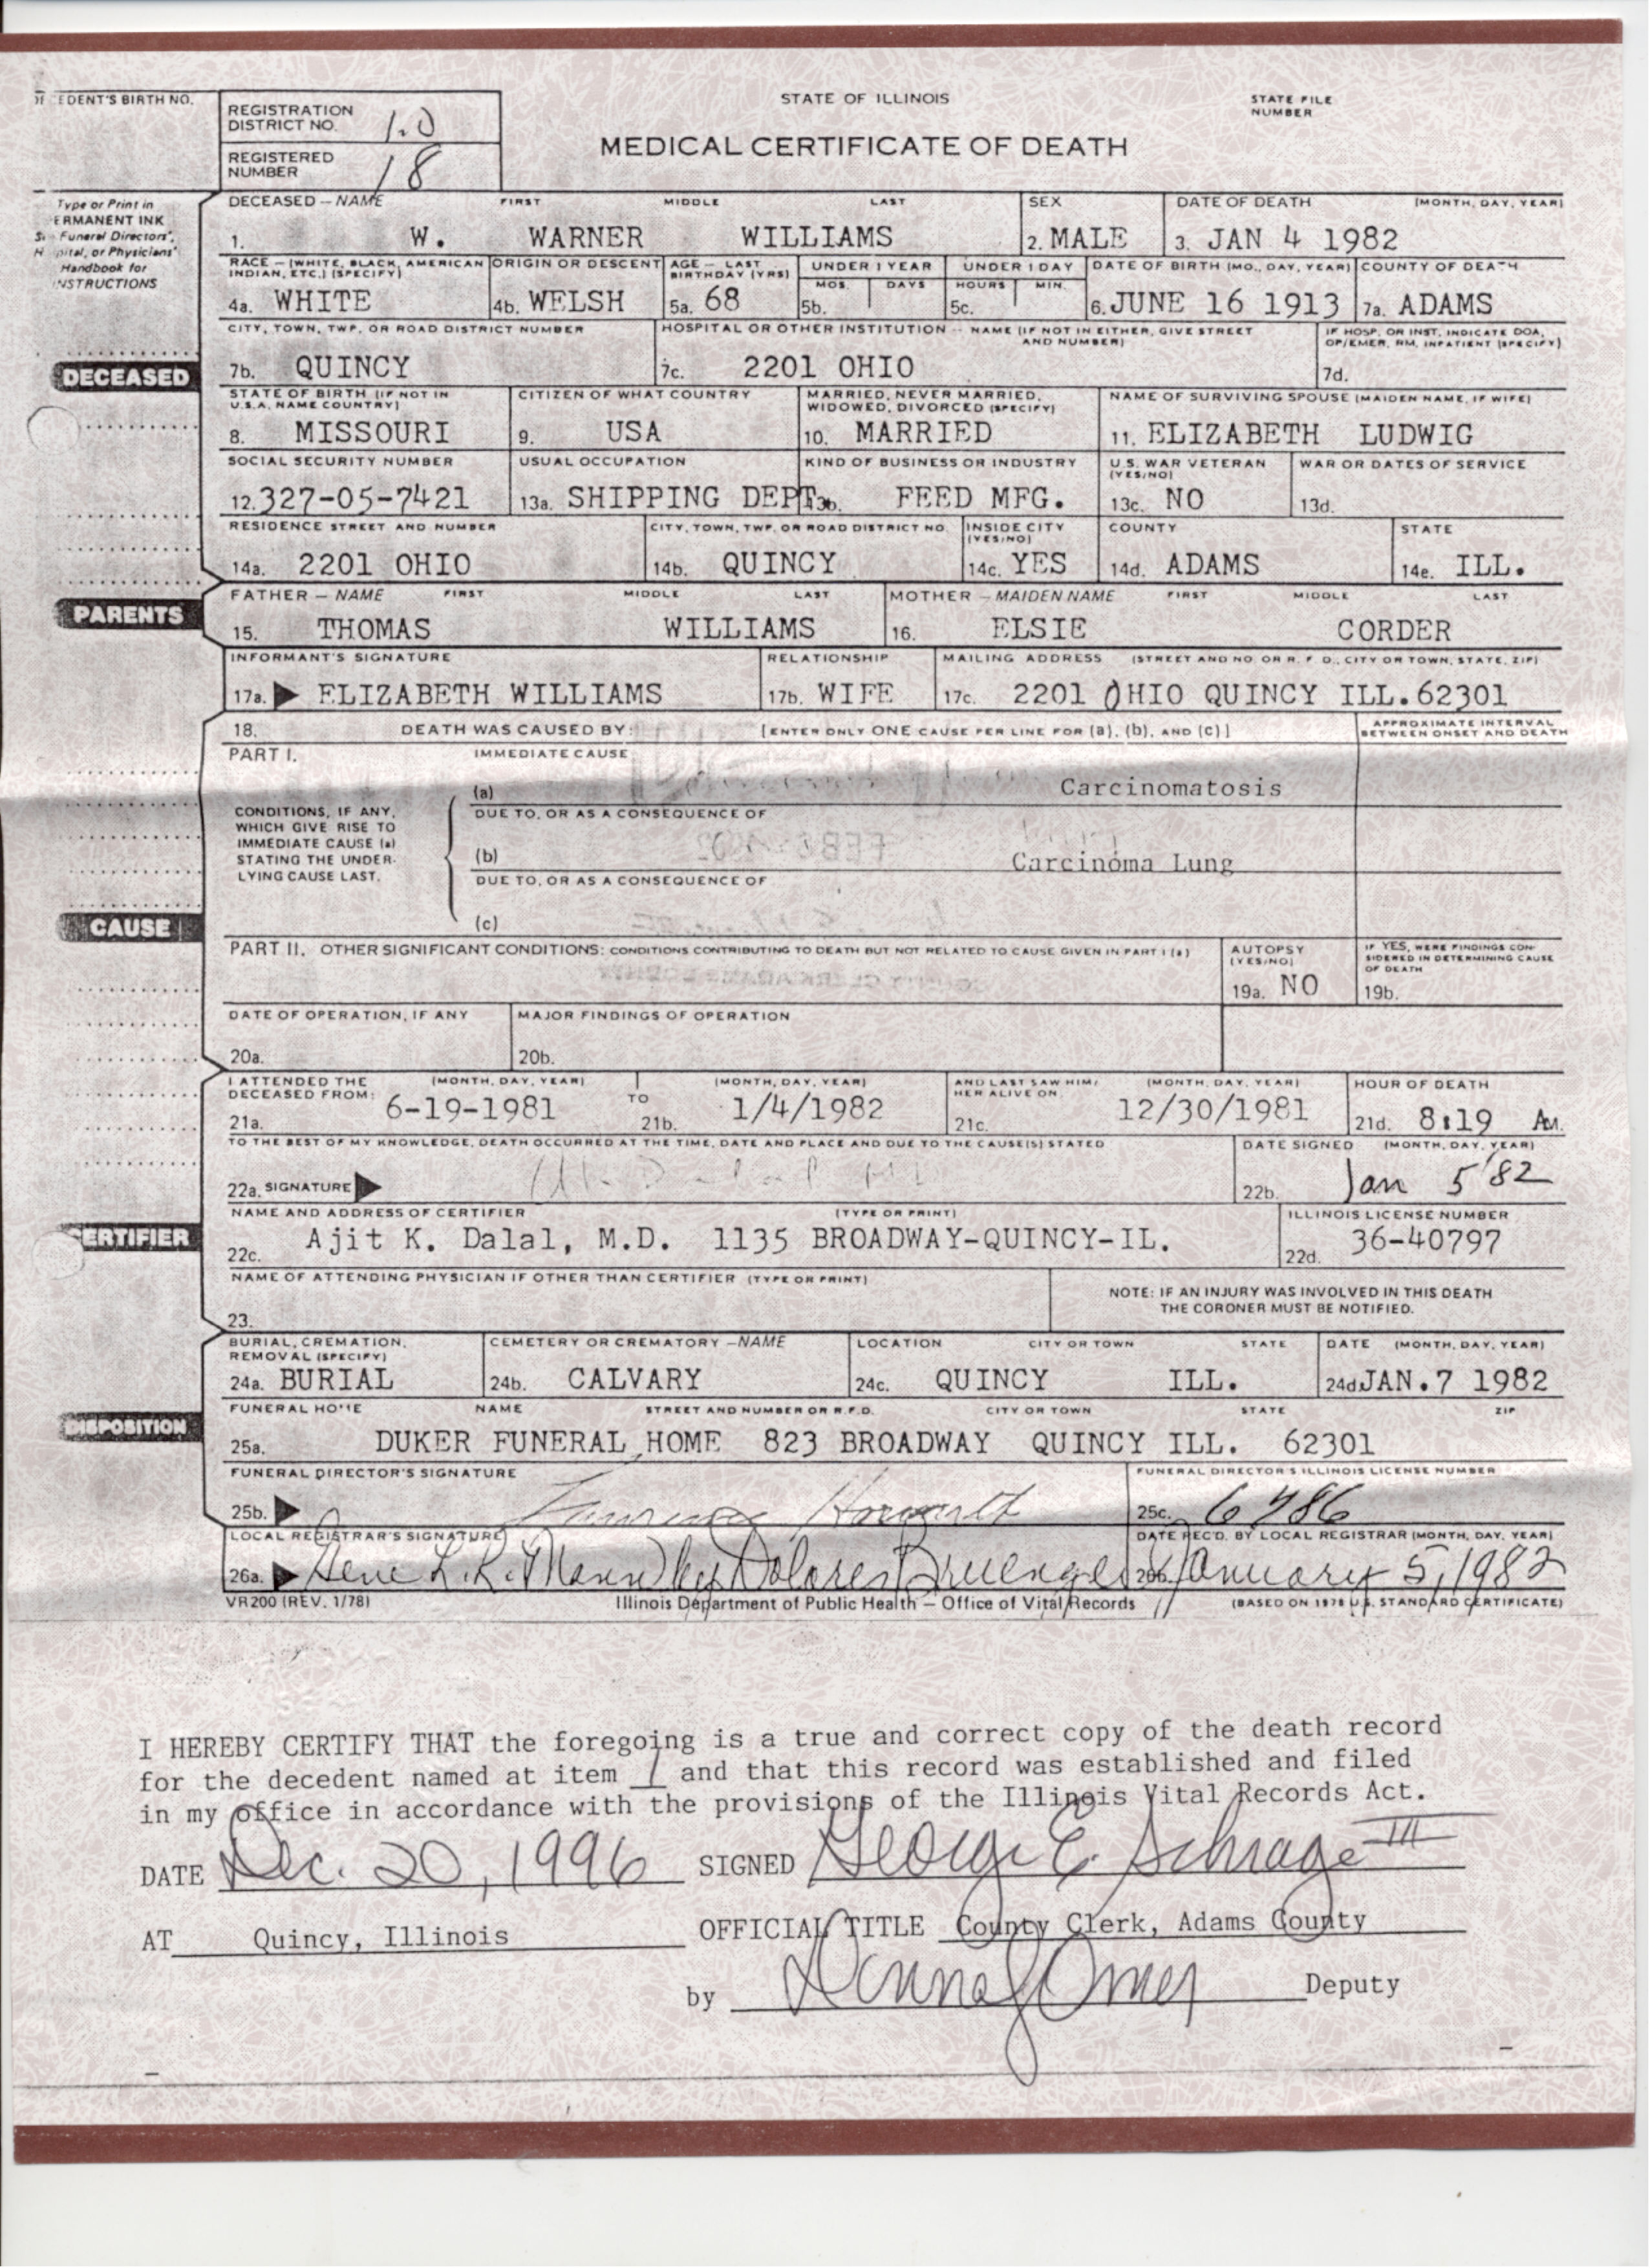 DECEDENT'S BIRTH NO.
REGISTRATION DISTRICT NO. 1.0
REGISTERED NUMBER 18
STATE OF ILLINOIS
STATE FILE NUMBER
MEDICAL CERTIFICATE OF DEATH
Type or Print in
ERMANENT INK
Funeral Directors',
pital, or Physicians'
Handbook for
INSTRUCTIONS
DECEASED — NAME FIRST MIDDLE LAST
1. W. WARNER WILLIAMS
SEX
2. MALE
DATE OF DEATH (MONTH, DAY, YEAR)
3. JAN 4 1982
RACE — (WHITE, BLACK, AMERICAN INDIAN, ETC.) (SPECIFY)
4a. WHITE
ORIGIN OR DESCENT
4b. WELSH
AGE — LAST BIRTHDAY (YRS)
5a. 68
UNDER 1 YEAR
MOS. DAYS
5b.
UNDER 1 DAY
HOURS MIN.
5c.
DATE OF BIRTH (MO., DAY, YEAR)
6. JUNE 16 1913
COUNTY OF DEATH
7a. ADAMS
DECEASED
CITY, TOWN, TWP, OR ROAD DISTRICT NUMBER
7b. QUINCY
HOSPITAL OR OTHER INSTITUTION — NAME (IF NOT IN EITHER, GIVE STREET AND NUMBER)
7c. 2201 OHIO
IF HOSP. OR INST. INDICATE DOA, OP/EMER. RM, INPATIENT (SPECIFY)
7d.
STATE OF BIRTH (IF NOT IN U.S.A. NAME COUNTRY)
8. MISSOURI
CITIZEN OF WHAT COUNTRY
9. USA
MARRIED, NEVER MARRIED, WIDOWED, DIVORCED (SPECIFY)
10. MARRIED
NAME OF SURVIVING SPOUSE (MAIDEN NAME, IF WIFE)
11. ELIZABETH LUDWIG
SOCIAL SECURITY NUMBER
12. 327-05-7421
USUAL OCCUPATION
13a. SHIPPING DEPT.
KIND OF BUSINESS OR INDUSTRY
13b. FEED MFG.
U.S. WAR VETERAN (YES/NO)
13c. NO
WAR OR DATES OF SERVICE
13d.
RESIDENCE STREET AND NUMBER
14a. 2201 OHIO
CITY, TOWN, TWP, OR ROAD DISTRICT NO.
14b. QUINCY
INSIDE CITY (YES/NO)
14c. YES
COUNTY
14d. ADAMS
STATE
14e. ILL.
PARENTS
FATHER — NAME FIRST MIDDLE LAST
15. THOMAS WILLIAMS
MOTHER — MAIDEN NAME FIRST MIDDLE LAST
16. ELSIE CORDER
INFORMANT'S SIGNATURE
17a. ELIZABETH WILLIAMS
RELATIONSHIP
17b. WIFE
MAILING ADDRESS (STREET AND NO. OR R. F. D., CITY OR TOWN, STATE, ZIP)
17c. 2201 OHIO QUINCY ILL. 62301
18. DEATH WAS CAUSED BY: [ENTER ONLY ONE CAUSE PER LINE FOR (a), (b), AND (c)]
APPROXIMATE INTERVAL BETWEEN ONSET AND DEATH
PART I. IMMEDIATE CAUSE
(a) Carcinomatosis
DUE TO, OR AS A CONSEQUENCE OF
(b) Carcinoma Lung
DUE TO, OR AS A CONSEQUENCE OF
(c)
CONDITIONS, IF ANY,
WHICH GIVE RISE TO
IMMEDIATE CAUSE (a)
STATING THE UNDER-
LYING CAUSE LAST.
CAUSE
PART II. OTHER SIGNIFICANT CONDITIONS: CONDITIONS CONTRIBUTING TO DEATH BUT NOT RELATED TO CAUSE GIVEN IN PART I (a)
AUTOPSY (YES/NO)
19a. NO
IF YES, WERE FINDINGS CONSIDERED IN DETERMINING CAUSE OF DEATH
19b.
DATE OF OPERATION, IF ANY
20a.
MAJOR FINDINGS OF OPERATION
20b.
I ATTENDED THE DECEASED FROM: (MONTH, DAY, YEAR)
21a. 6-19-1981
TO (MONTH, DAY, YEAR)
21b. 1/4/1982
AND LAST SAW HIM/HER ALIVE ON (MONTH, DAY, YEAR)
21c. 12/30/1981
HOUR OF DEATH
21d. 8:19 AM.
TO THE BEST OF MY KNOWLEDGE, DEATH OCCURRED AT THE TIME, DATE AND PLACE AND DUE TO THE CAUSE(S) STATED
22a. SIGNATURE
DATE SIGNED (MONTH, DAY, YEAR)
22b. Jan 5 '82
CERTIFIER
NAME AND ADDRESS OF CERTIFIER (TYPE OR PRINT)
22c. Ajit K. Dalal, M.D. 1135 BROADWAY-QUINCY-IL.
ILLINOIS LICENSE NUMBER
22d. 36-40797
NAME OF ATTENDING PHYSICIAN IF OTHER THAN CERTIFIER (TYPE OR PRINT)
23.
NOTE: IF AN INJURY WAS INVOLVED IN THIS DEATH
THE CORONER MUST BE NOTIFIED.
DISPOSITION
BURIAL, CREMATION, REMOVAL (SPECIFY)
24a. BURIAL
CEMETERY OR CREMATORY — NAME
24b. CALVARY
LOCATION CITY OR TOWN STATE
24c. QUINCY ILL.
DATE (MONTH, DAY, YEAR)
24d JAN. 7 1982
FUNERAL HOME NAME STREET AND NUMBER OR R.F.D. CITY OR TOWN STATE ZIP
25a. DUKER FUNERAL HOME 823 BROADWAY QUINCY ILL. 62301
FUNERAL DIRECTOR'S SIGNATURE
25b.
FUNERAL DIRECTOR'S ILLINOIS LICENSE NUMBER
25c. 6786
LOCAL REGISTRAR'S SIGNATURE
26a. by Dolores
DATE REC'D. BY LOCAL REGISTRAR (MONTH, DAY, YEAR)
26b. January 5, 1982
VR200 (REV. 1/78) Illinois Department of Public Health — Office of Vital Records (BASED ON 1978 U.S. STANDARD CERTIFICATE)
I HEREBY CERTIFY THAT the foregoing is a true and correct copy of the death record
for the decedent named at item 1 and that this record was established and filed
in my office in accordance with the provisions of the Illinois Vital Records Act.
DATE Dec. 20, 1996 SIGNED George E. Schrage III
AT Quincy, Illinois OFFICIAL TITLE County Clerk, Adams County
by Deputy